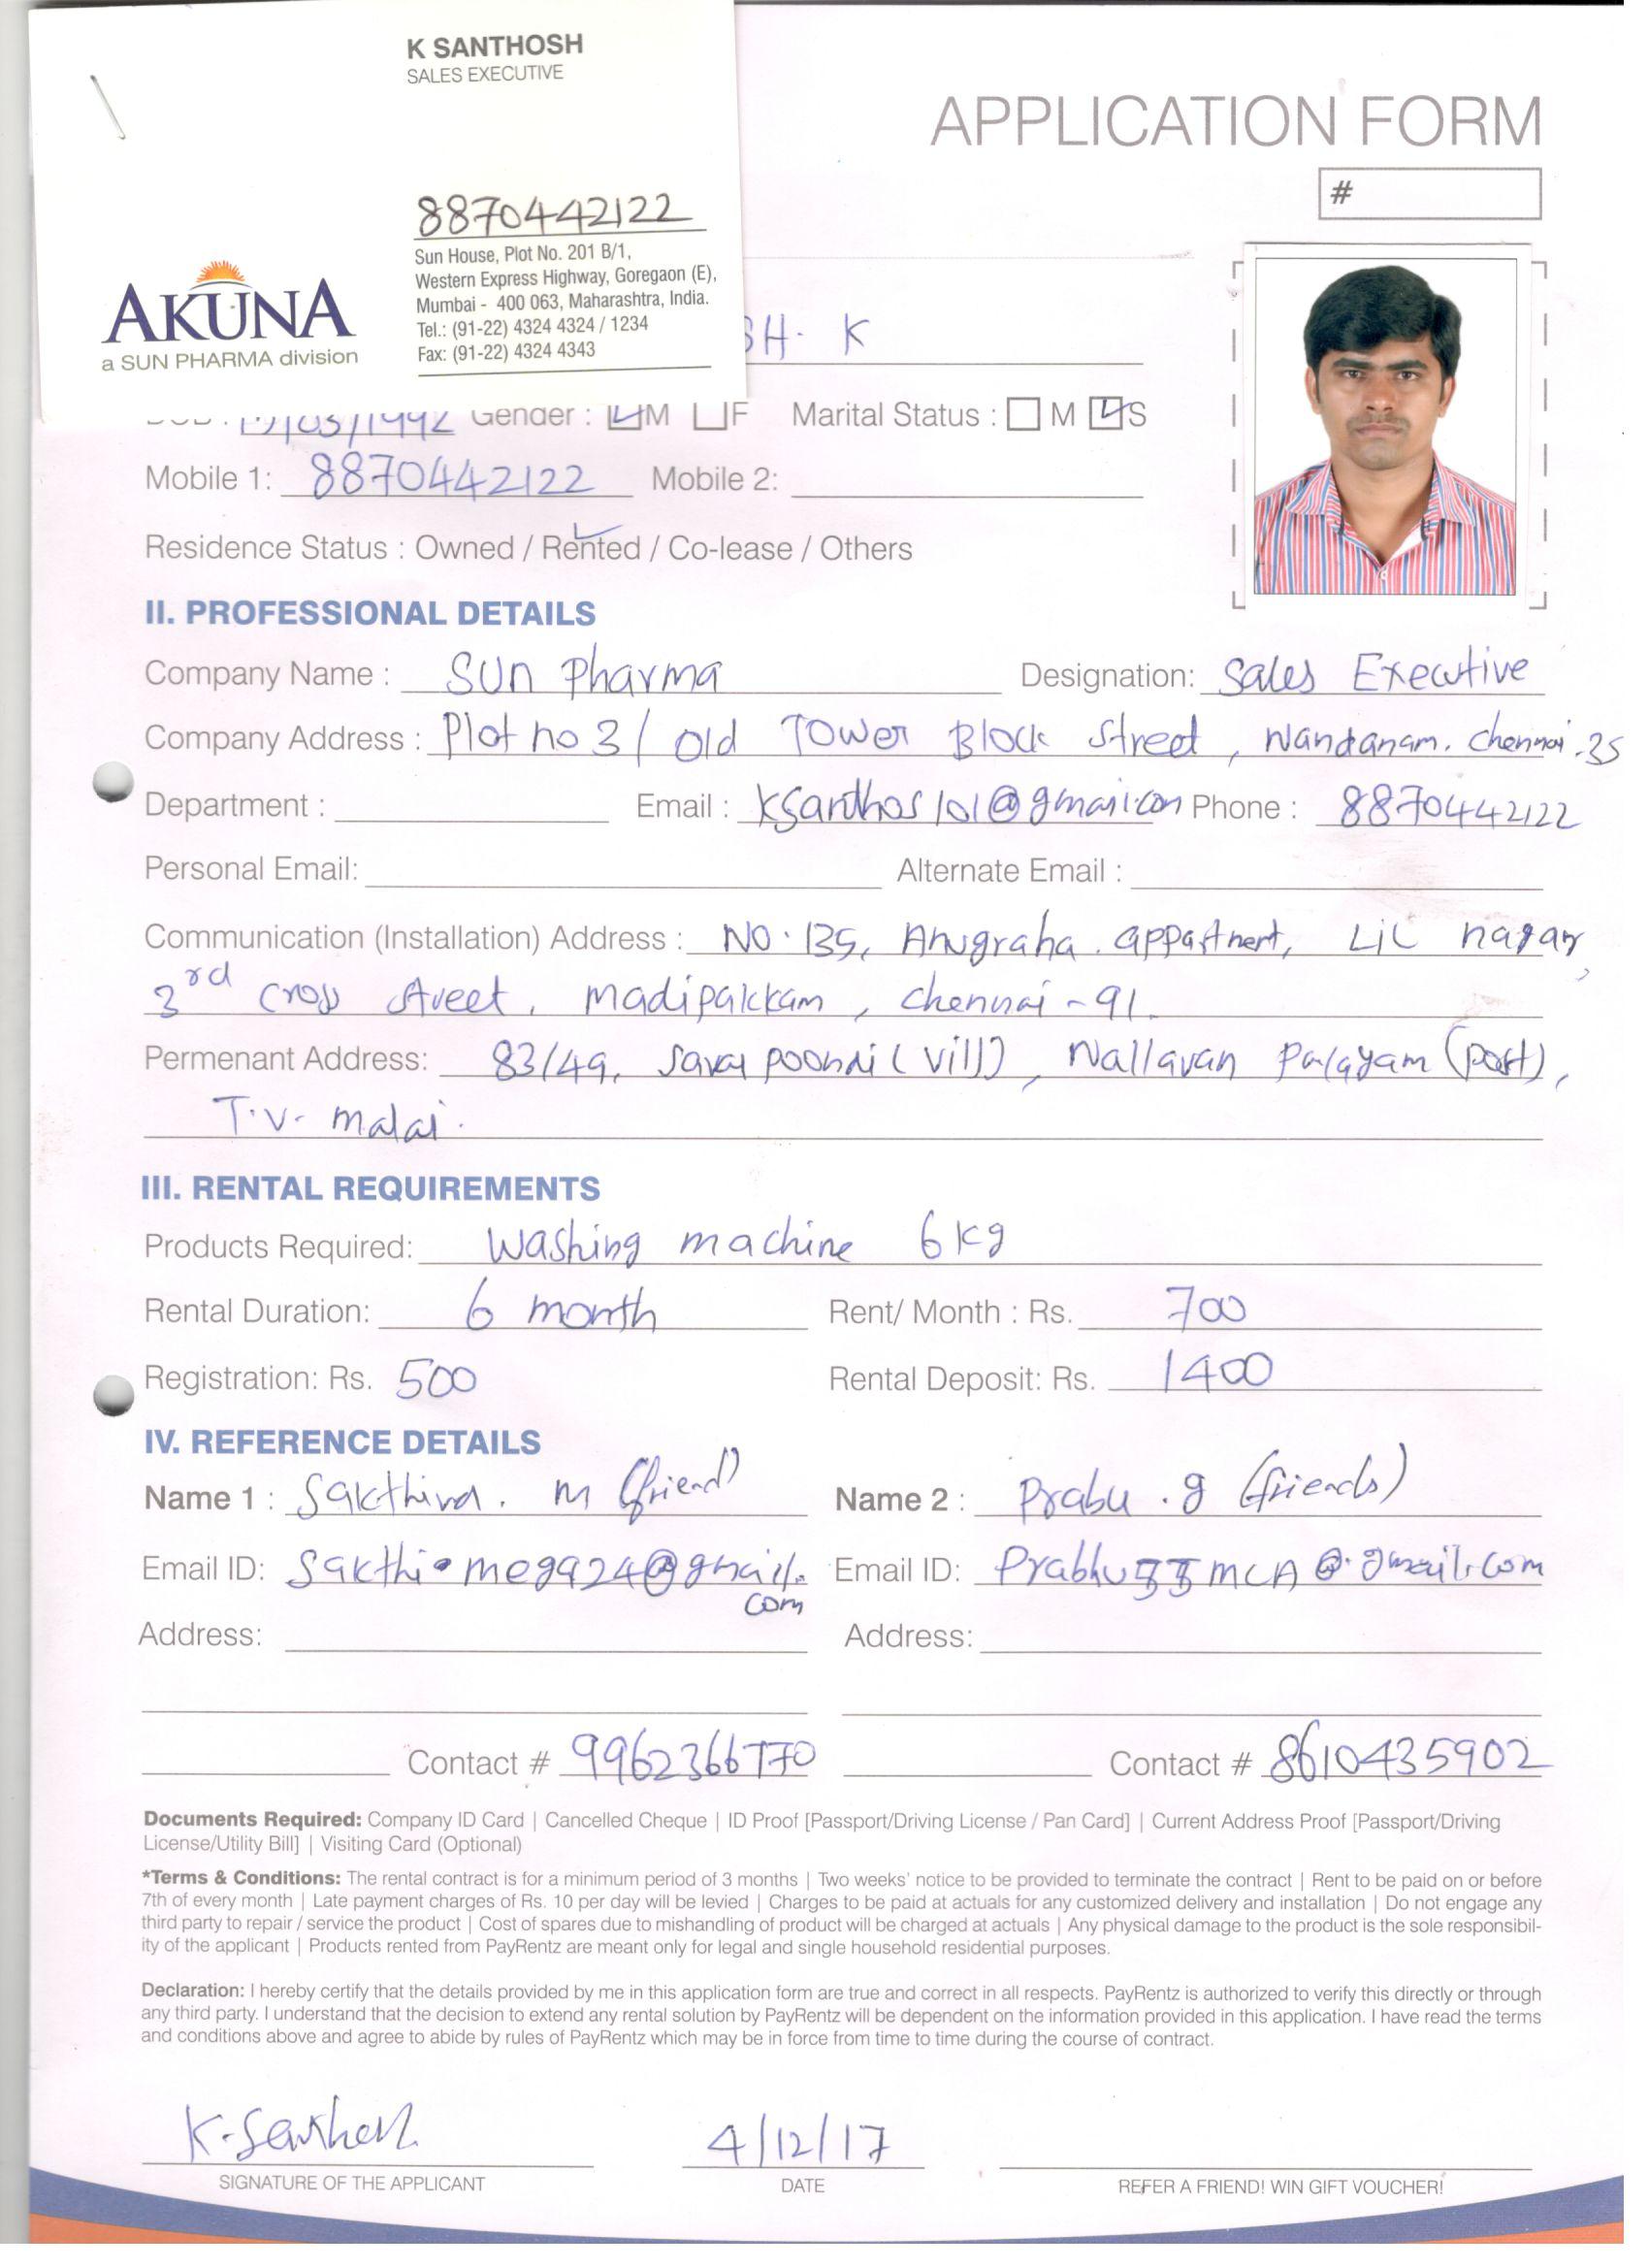 K SANTHOSH
SALES EXECUTIVE
8870442122
Sun House, Plot No. 201 B/1,
Western Express Highway, Goregaon (E),
Mumbai - 400 063, Maharashtra, India.
Tel.: (91-22) 4324 4324 / 1234
Fax: (91-22) 4324 4343
AKUNA
a SUN PHARMA division
APPLICATION FORM
#
SH. K
/03/1992 Gender : M F Marital Status : M S
Mobile 1: 8870442122 Mobile 2:
Residence Status : Owned / Rented / Co-lease / Others
II. PROFESSIONAL DETAILS
Company Name : Sun Pharma Designation: Sales Executive
Company Address : Plot no 3 / old Tower Block Street, Nandanam. Chennai-35
Department : Email : Ksanthos101@gmail.com Phone : 8870442122
Personal Email: Alternate Email :
Communication (Installation) Address : NO. 135, Anugraha. appartment, LIC nagar,
3rd Cross Street, madipakkam, chennai - 91.
Permenant Address: 83/49, (Vill), Nallavan Palayam (post),
T.V. malai.
III. RENTAL REQUIREMENTS
Products Required: Washing machine 6 kg
Rental Duration: 6 month Rent/ Month : Rs. 700
Registration: Rs. 500 Rental Deposit: Rs. 1400
IV. REFERENCE DETAILS
Name 1 : M (friend) Name 2 : Prabu . g (friends)
Email ID: Email ID:
Address: Address:
Contact # 9962366770 Contact # 8610435902
Documents Required: Company ID Card | Cancelled Cheque | ID Proof [Passport/Driving License / Pan Card] | Current Address Proof [Passport/Driving
License/Utility Bill] | Visiting Card (Optional)
*Terms & Conditions: The rental contract is for a minimum period of 3 months | Two weeks' notice to be provided to terminate the contract | Rent to be paid on or before
7th of every month | Late payment charges of Rs. 10 per day will be levied | Charges to be paid at actuals for any customized delivery and installation | Do not engage any
third party to repair / service the product | Cost of spares due to mishandling of product will be charged at actuals | Any physical damage to the product is the sole responsibil-
ity of the applicant | Products rented from PayRentz are meant only for legal and single household residential purposes.
Declaration: I hereby certify that the details provided by me in this application form are true and correct in all respects. PayRentz is authorized to verify this directly or through
any third party. I understand that the decision to extend any rental solution by PayRentz will be dependent on the information provided in this application. I have read the terms
and conditions above and agree to abide by rules of PayRentz which may be in force from time to time during the course of contract.
4/12/17
SIGNATURE OF THE APPLICANT DATE REFER A FRIEND! WIN GIFT VOUCHER!